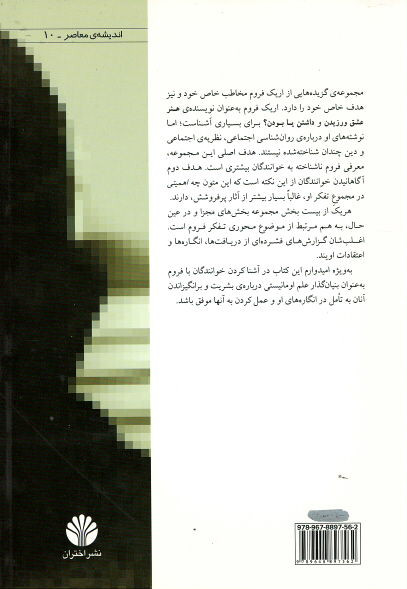 اندیشه‌ی معاصر - ۱۰
مجموعه‌ی گزیده‌هایی از اریک فروم مخاطب خاص خود و نیز
هدف خاص خود را دارد. اریک فروم به‌عنوان نویسنده‌ی هنر
عشق ورزیدن و داشتن یا بودن؟ برای بسیاری آشناست؛ اما
نوشته‌های او درباره‌ی روان‌شناسی اجتماعی، نظریه‌ی اجتماعی
و دین چندان شناخته‌شده نیستند. هدف اصلی این مجموعه،
معرفی فروم ناشناخته به خوانندگان بیشتری است. هدف دوم
آگاهانیدن خوانندگان از این نکته است که این متون چه اهمیتی
در مجموع تفکر او، غالباً بسیار بیشتر از آثار پرفروشش، دارند.
هریک از بیست بخش مجموعه بخش‌های مجزا و در عین
حال، به هم مرتبط از موضوع محوری تفکر فروم است.
اغلب‌شان گزارش‌های فشرده‌ای از دریافت‌ها، انگاره‌ها و
اعتقادات اویند.
به‌ویژه امیدوارم این کتاب در آشنا کردن خوانندگان با فروم
به‌عنوان بنیان‌گذار علم اومانیستی درباره‌ی بشریت و برانگیزاندن
آنان به تأمل در انگاره‌های او و عمل کردن به آنها موفق باشد.
978-967-8897-56-2
9789648897562
نشر اختران